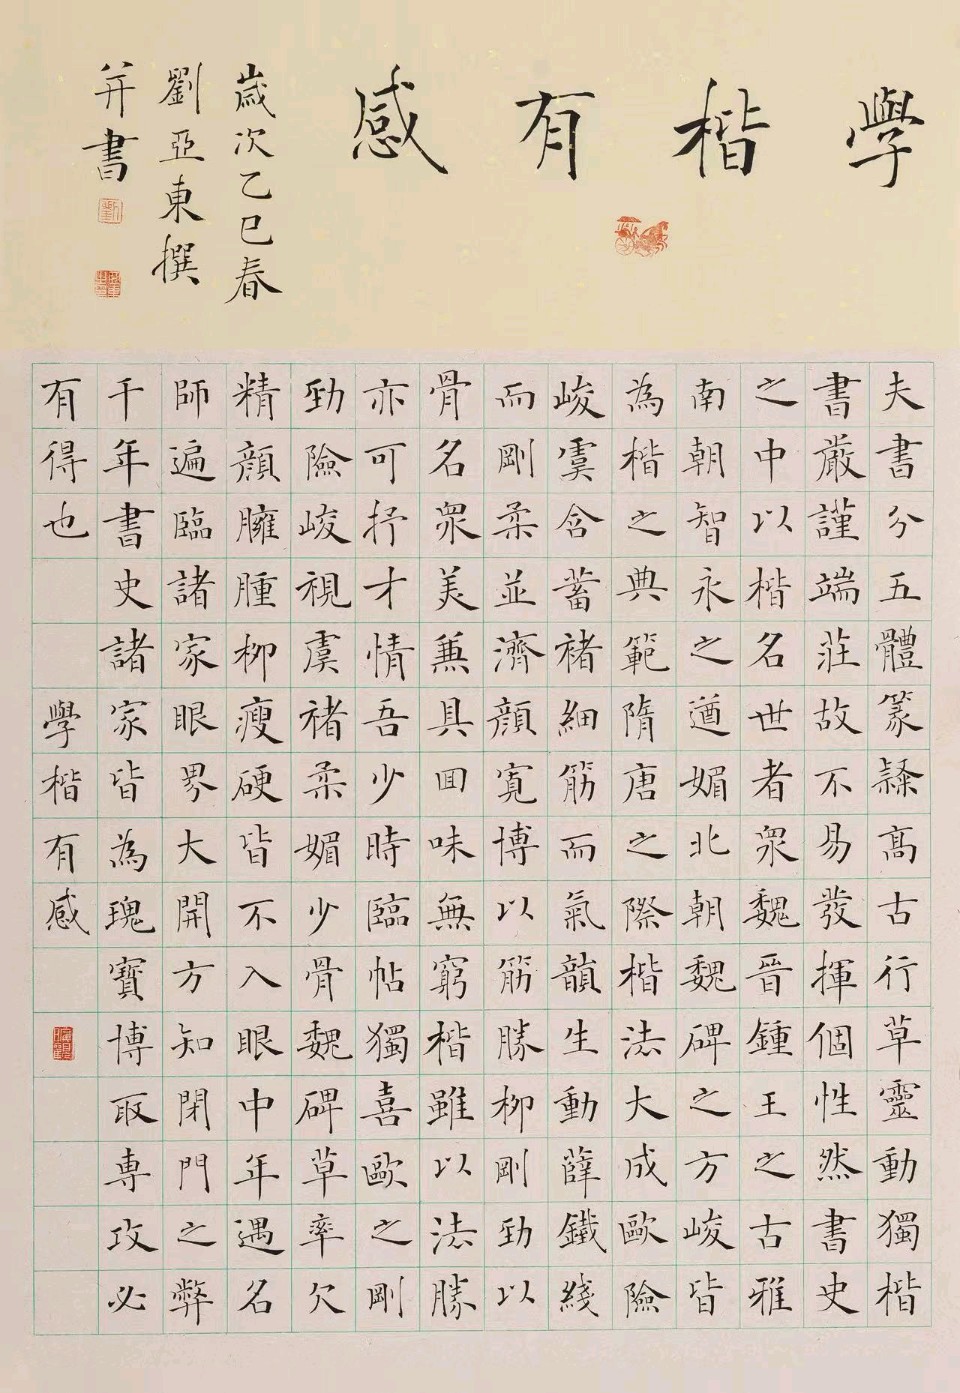 學楷有感
歲次乙巳春
劉亞東撰
并書
夫書分五體篆隸高古行草靈動獨楷
書嚴謹端莊故不易發揮個性然書史
之中以楷名世者衆魏晉鍾王之古雅
南朝智永之遒媚北朝魏碑之方峻皆
為楷之典範隋唐之際楷法大成歐險
峻虞含蓄褚細筋而氣韻生動薛鐵綫
而剛柔並濟顏寬博以筋勝柳剛勁以
骨名衆美兼具回味無窮楷雖以法勝
亦可抒才情吾少時臨帖獨喜歐之剛
勁險峻視虞褚柔媚少骨魏碑草率欠
精顏臃腫柳瘦硬皆不入眼中年遇名
師遍臨諸家眼界大開方知閉門之弊
千年書史諸家皆為瑰寶博取專攻必
有得也 學楷有感